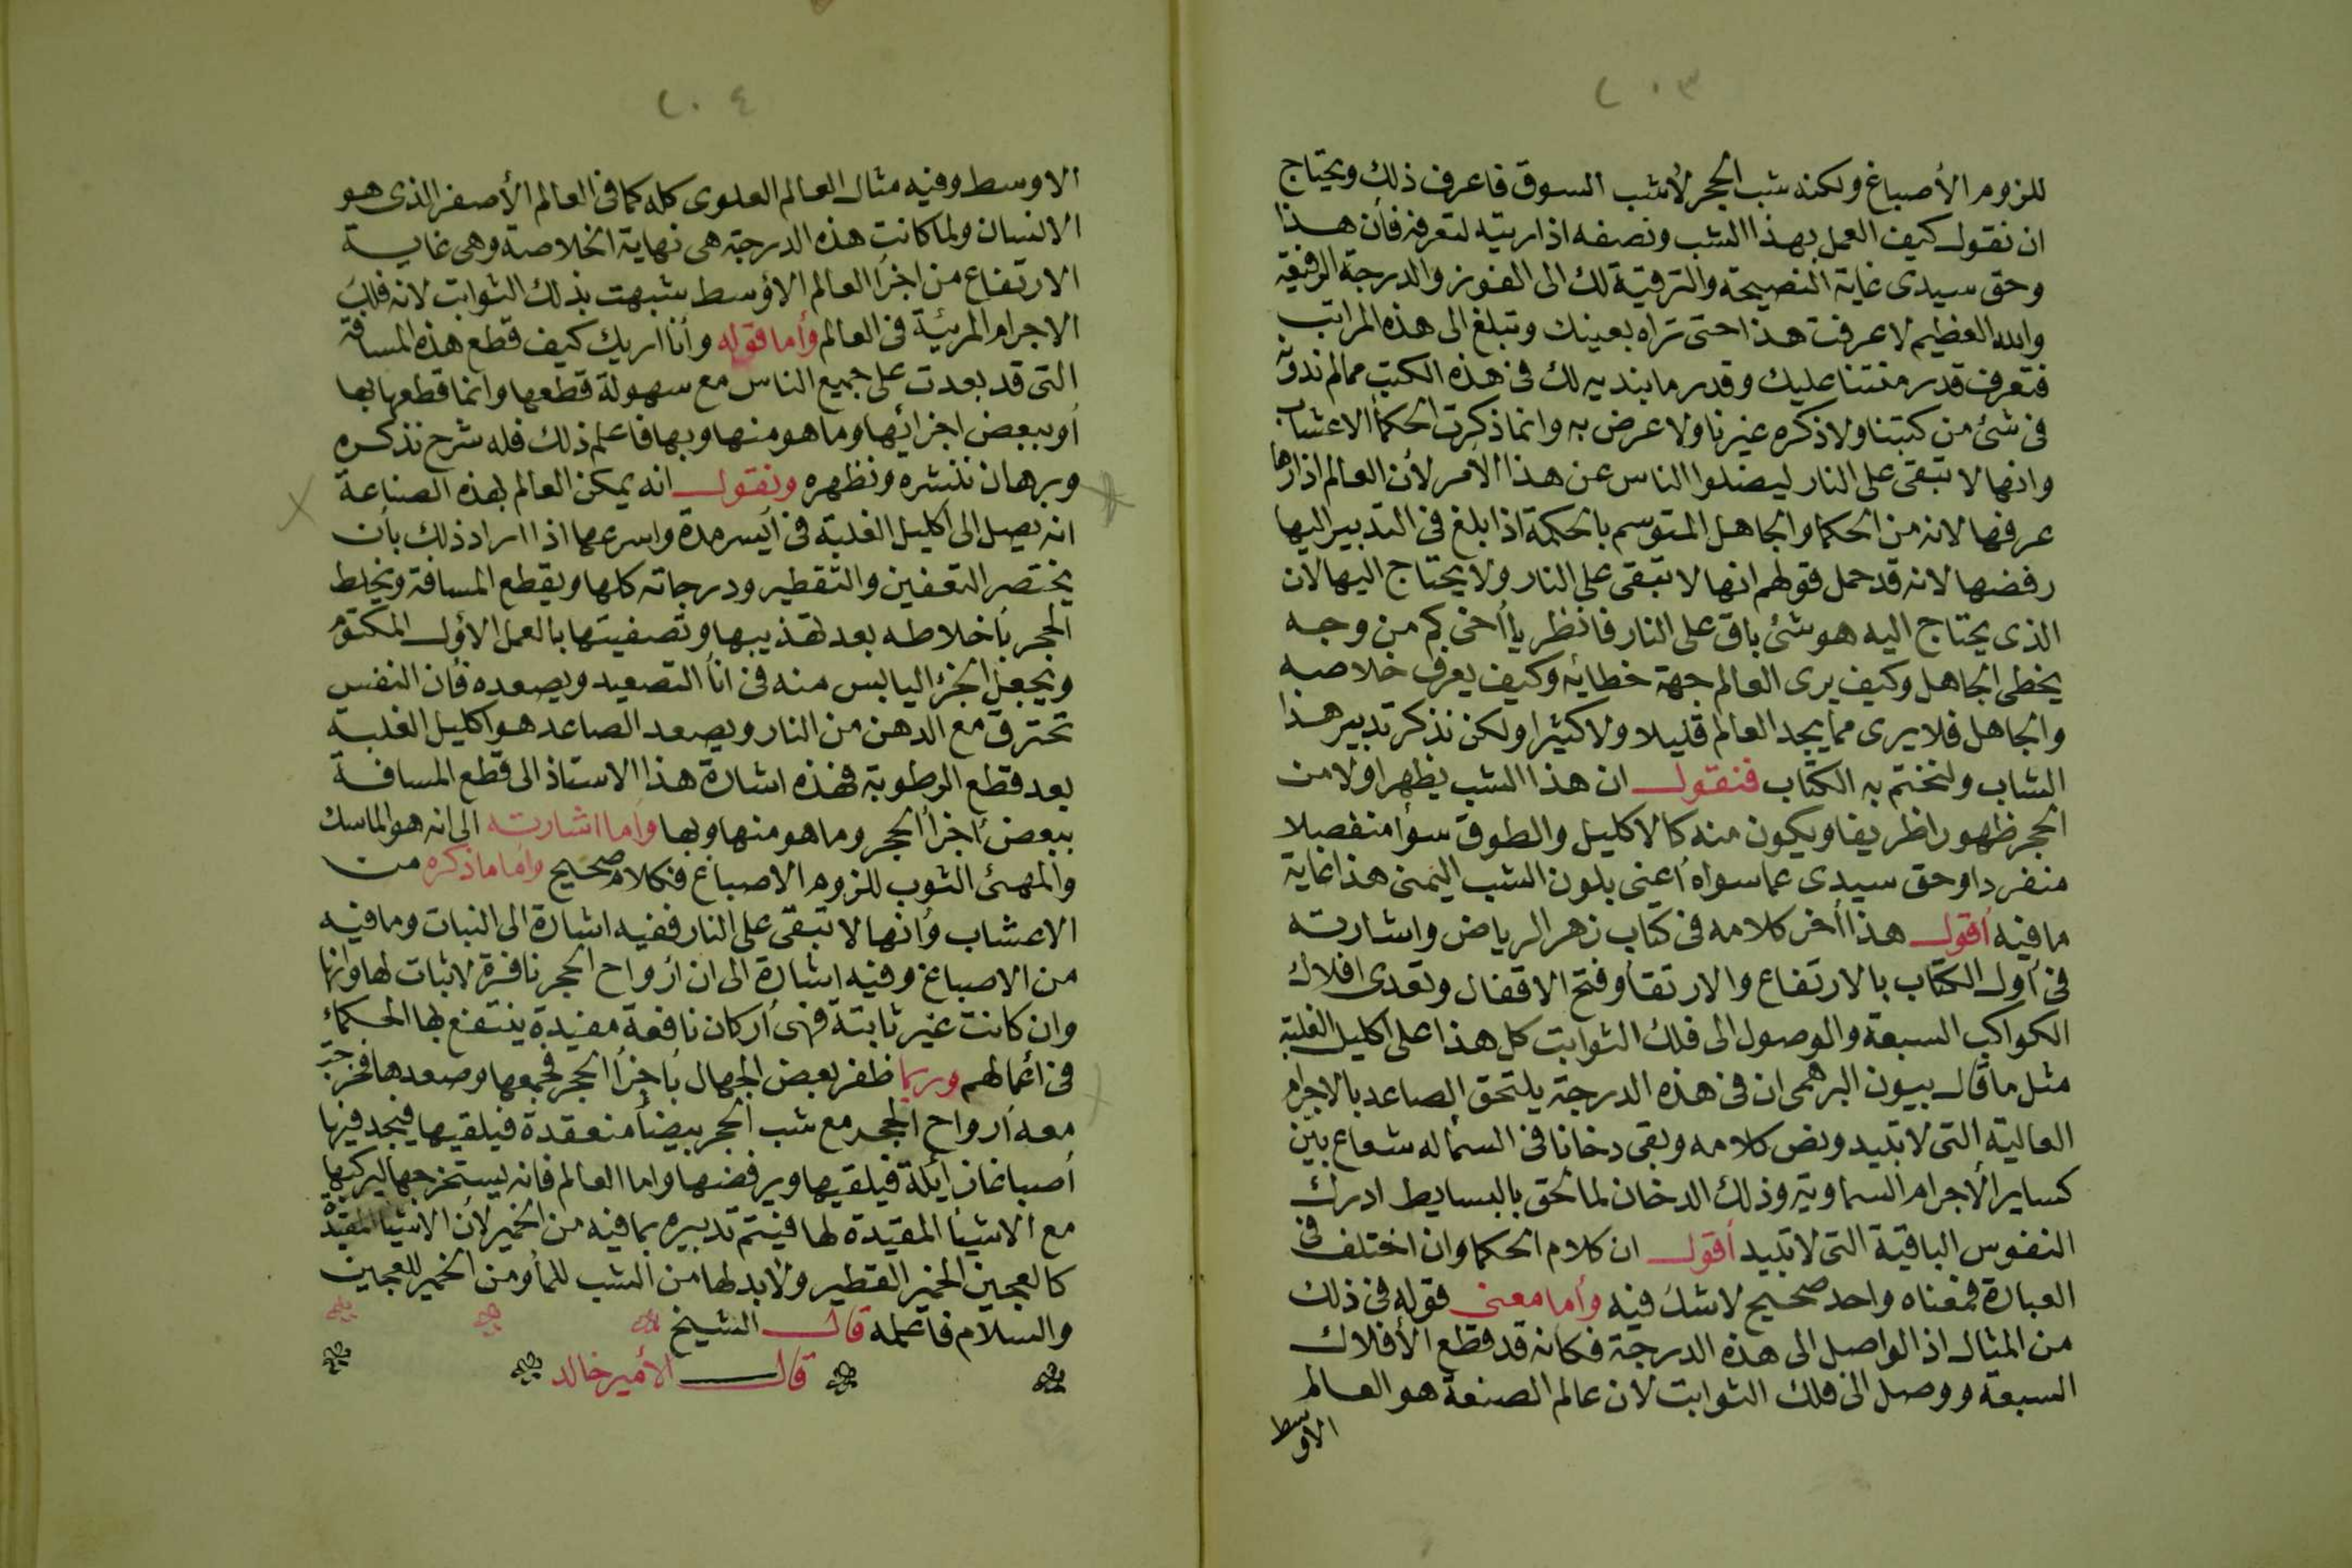 ٢٠٣
للزوم الأصباغ ولكنه شب الحجر لأشب السوق فاعرف ذلك ويحتاج
ان نقول كيف العمل بهذا الشب ونصفه اذا ريته لتعرفه فأن هذا
وحق سيدى غاية النصيحة والترقية لك الى الفوز والدرجة الرفيعة
والله العظيم لا عرفت هذا حتى تراه بعينك وتبلغ الى هذه المراتب
فتعرف قدر منتنا عليك وقدر ما بنديه لك فى هذه الكتب مما لم ندونه
فى شئ من كتبنا ولا ذكره غيرنا ولا عرض به وانما ذكرت الحكمأ الاعشاب
وانها لا تبقى على النار ليضلوا الناس عن هذا الأمر لأن العالم اذا رها
عرفها لانه من الحكما والجاهل المتوسم بالحكمة اذا بلغ فى التدبير اليها
رفضها لانه قد حمل قولهم انها لا تبقى على النار ولا يحتاج اليها لان
الذى يحتاج اليه هو شئ باق على النار فانظر يا أخى كم من وجه
يخطى الجاهل وكيف يرى العالم جهة خطائه وكيف يعرف خلاصه
والجاهل فلا يرى مما يجد العالم قليلا ولا كثيرا ولكن نذكر تدبير هذا
الشاب ولنختم به الكتاب فنقول ان هذا الشب يظهر اولا من
الحجر ظهورا ظريفا ويكون منه كالاكليل والطوق سوأ منفصلا
منفردا وحق سيدى عما سواه أعنى بلون الشب اليمنى هذا غاية
ما فيه أقول هذا أخر كلامه فى كتاب زهر الرياض واشارته
فى أول الكتاب بالارتفاع والارتقأ وفتح الاقفال وتعدى افلاك
الكواكب السبعة والوصول الى فلك الثوابت كل هذا على اكليل الغلبة
مثل ما قال بيون البرهمى ان فى هذه الدرجة يلتحق الصاعد بالاجرام
العالية التى لا تبيد ونص كلامه وبقى دخانا فى السمأ له شعاع بين
كساير الأجرام السماوية وذلك الدخان لما لحق بالبسايط ادرك
النفوس الباقية التى لا تبيد أقول ان كلام الحكما وان اختلف فى
العبارة فمعناه واحد صحيح لا شك فيه وأما معنى قوله فى ذلك
من المثال اذ الواصل الى هذه الدرجة فكانه قد قطع الأفلاك
السبعة ووصل الى فلك الثوابت لان عالم الصنعة هو العالم
الاوسط
٢٠٤
الاوسط وفيه مثال العالم العلوى كله كما فى العالم الأصغر الذى هو
الانسان ولما كانت هذه الدرجة هى نهاية الخلاصة وهى غاية
الارتفاع من اجزأ العالم الأوسط شبهت بذلك الثوابت لانه فلك
الاجرام المرئية فى العالم وأما قوله وأنا اريك كيف قطع هذه المسافة
التى قد بعدت على جميع الناس مع سهولة قطعها وانما قطعها بها
أو ببعض اجزائها وما هو منها وبها فاعلم ذلك فله شرح نذكره
وبرهان ننشره ونظهره ونقول انه يمكن العالم بهذه الصناعة
انه يصل الى أكليل الغلبة فى أيسر مدة واسرعها اذا اراد ذلك بأن
يختصر التعفين والتقطير ودرجاته كلها ويقطع المسافة ويخلط
الحجر بأخلاطه بعد تهذيبها وتصفيتها بالعمل الأول المكتوم
ويجعل الجزء اليابس منه فى انأ التصعيد ويصعده فأن النفس
تحترق مع الدهن من النار ويصعد الصاعد هو اكليل الغلبة
بعد قطع الرطوبة فهذه اشارة هذا الاستاذ الى قطع المسافة
ببعض أجزأ الحجر وما هو منها وبها وأما اشارته الى انه هو الماسك
والمهيئ الثوب للزوم الاصباغ فكلام صحيح وأما ما ذكره من
الاعشاب وأنها لا تبقى على النار ففيه اشارة الى النبات وما فيه
من الاصباغ وفيه اشارة الى ان أرواح الحجر نافرة لا ثبات لها وانها
وان كانت غير ثابتة فهى أركان نافعة مفيدة ينتفع بها الحكمأ
فى أعمالهم وربما ظفر بعض الجهال بأجزأ الحجر فجمعها وصعدها فخرجت
معه أرواح الحجر مع شب الحجر بيضأ منعقدة فيلقيها فيجد فيها
أصباغا زايلة فيلقيها ويرفضها واما العالم فانه يستخرجها ليركبها
مع الاشيأ المقيدة لها فيتم تدبيره بما فيه من الخمير لأن الاشيأ المقيدة
كالعجين الخمير الفطير ولا بد لها من الشب للمأ ومن الخمير للعجين
والسلام فاعمله قال الشيخ
قال الأمير خالد